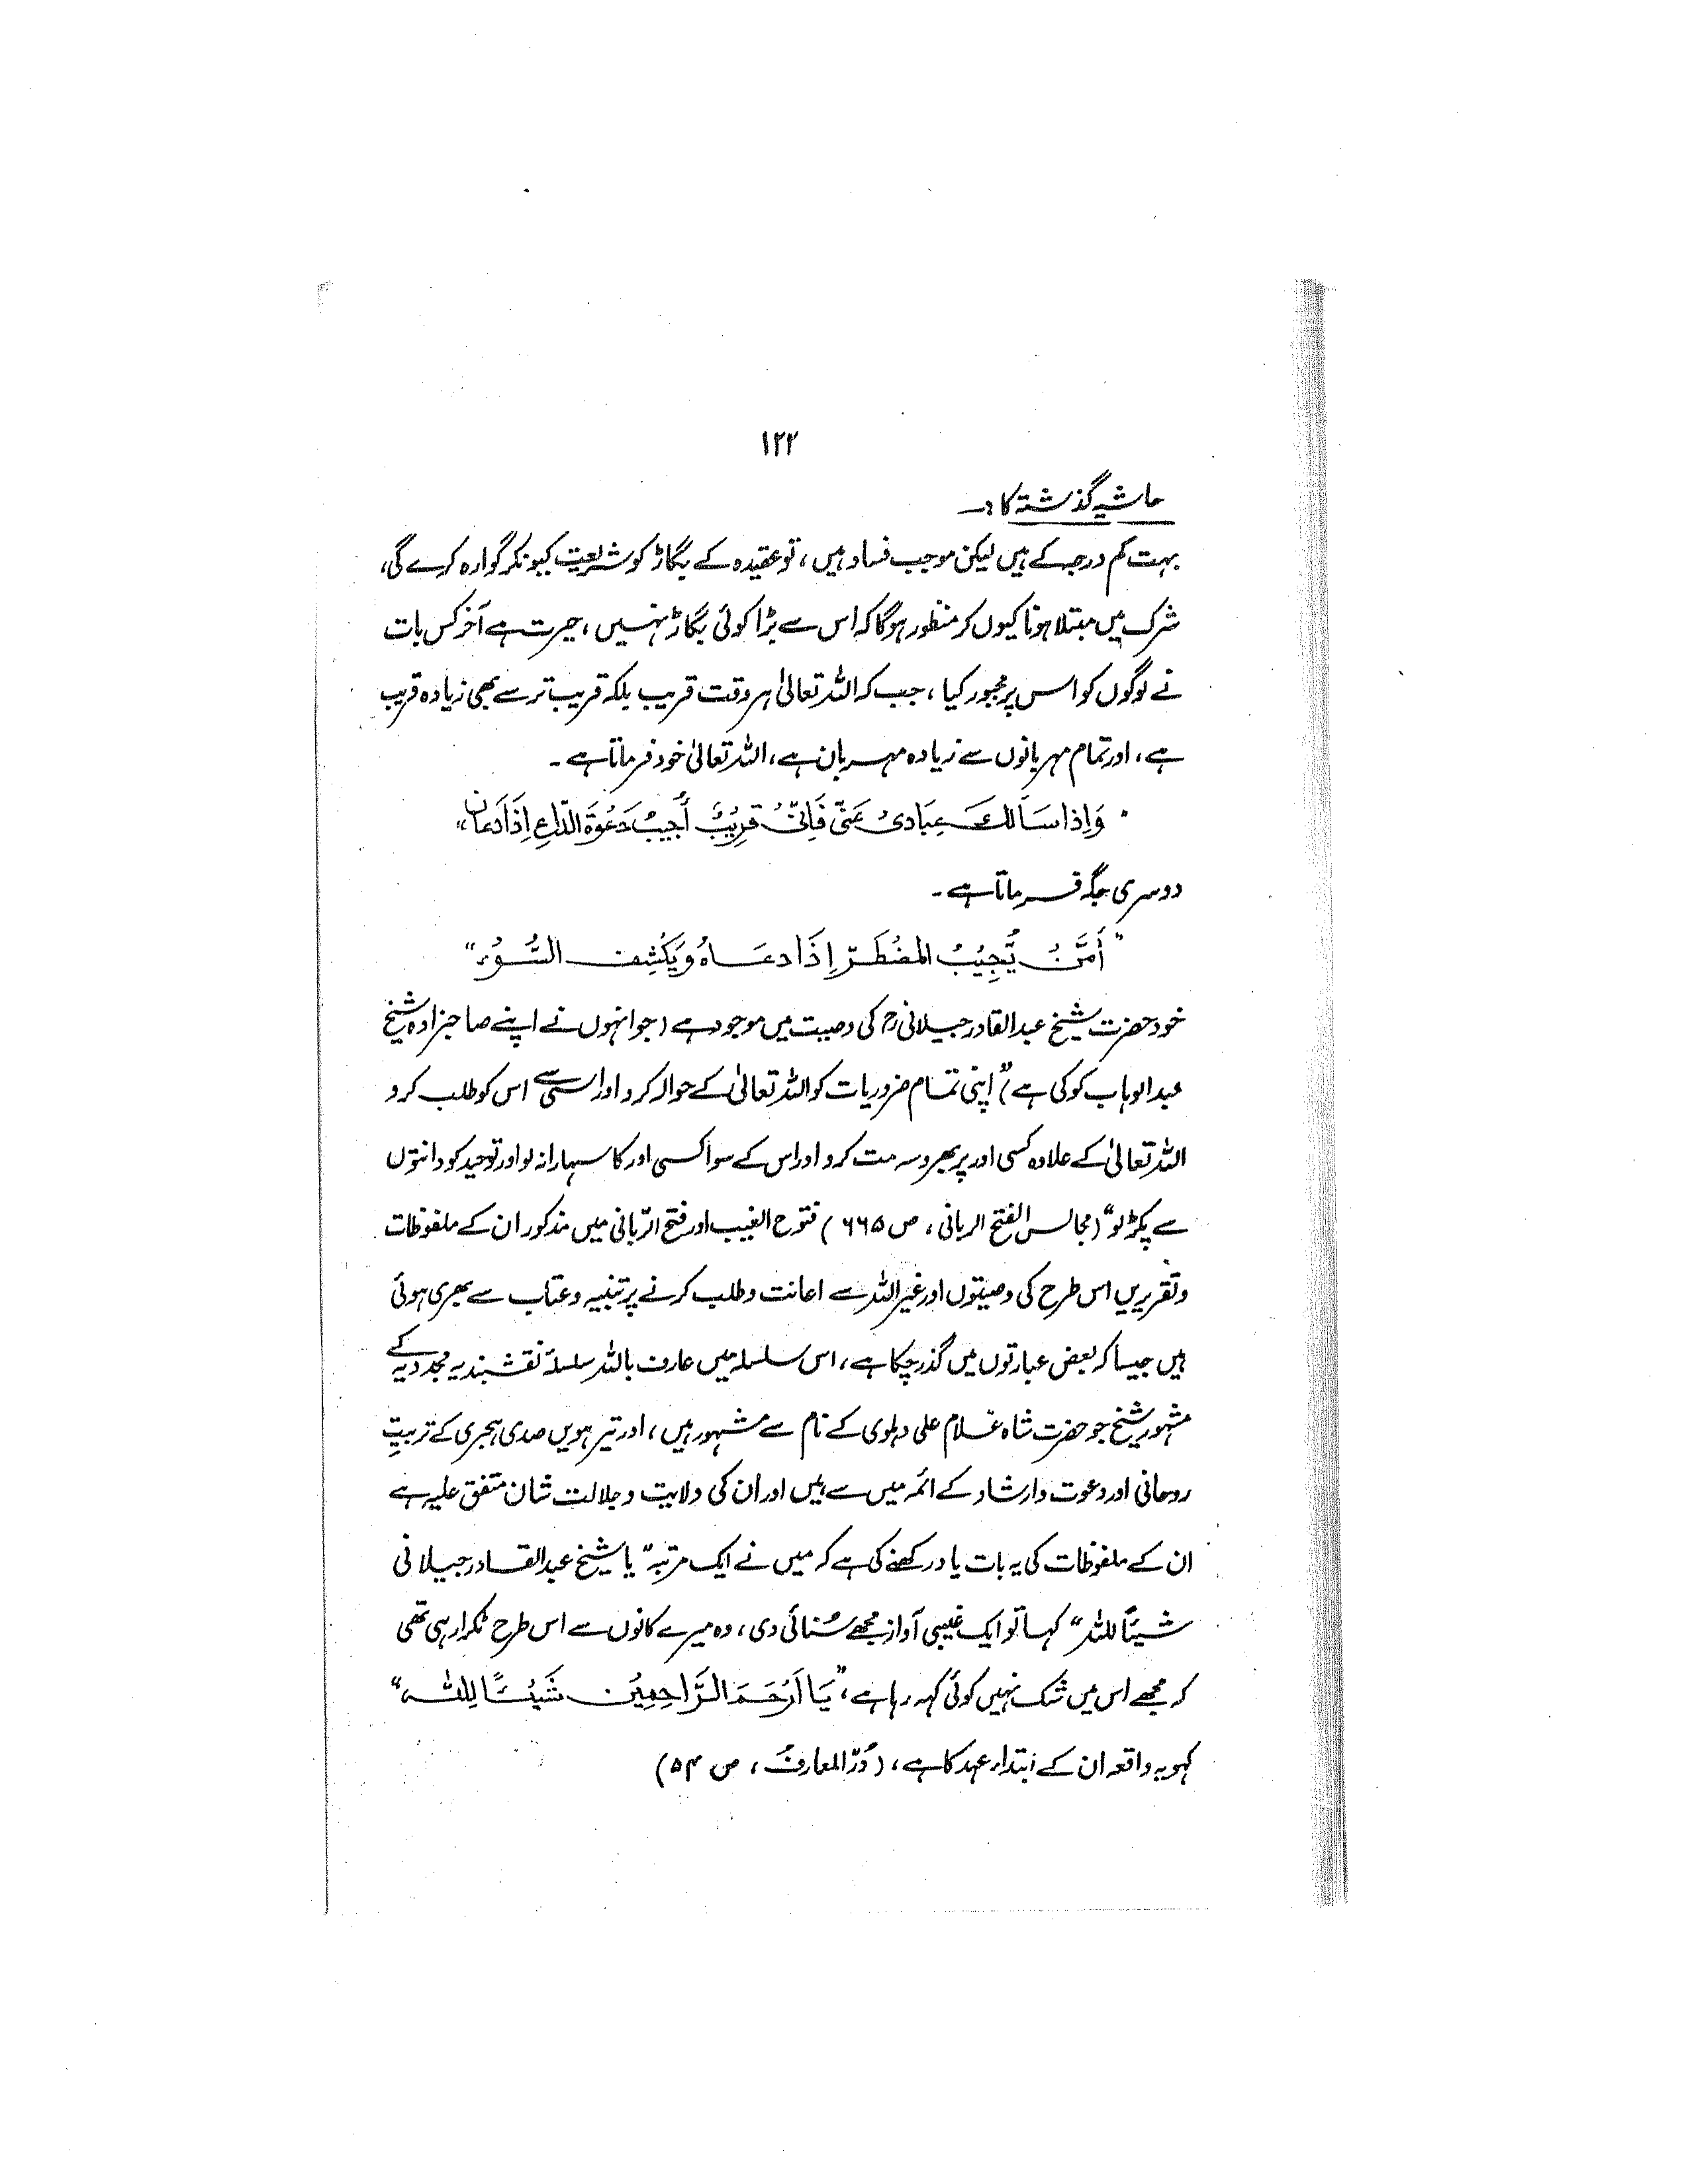 ۱۲۲
حاشیہ گذشتہ کا :۔
بہت کم درجہ کے ہیں لیکن موجب فساد ہیں، تو عقیدہ کے بگاڑ کو شریعت کیونکر گوارہ کرے گی،
شرک میں مبتلا ہونا کیوں کر منظور ہوگا کہ اس سے بڑا کوئی بگاڑ نہیں، حیرت ہے آخر کس بات
نے لوگوں کو اس پر مجبور کیا، جب کہ اللہ تعالیٰ ہر وقت قریب بلکہ قریب تر سے بھی زیادہ قریب
ہے، اور تمام مہربانوں سے زیادہ مہربان ہے، اللہ تعالیٰ خود فرماتا ہے ۔
" وَاِذا سَاَلَكَ عِبَادِیْ عَنِّی فَاِنِّیْ قَرِیْبٌ أُجِیْبُ دَعْوَةَ الدَّاعِ اِذَا دَعَانِ"
دوسری جگہ فرماتا ہے ۔
" أَمَّنْ یُّجِیْبُ المضْطَرّ اِذَا دعَاهُ وَیَکْشِف السُّوْء "
خود حضرت شیخ عبدالقادر جیلانیؒ کی وصیت میں موجود ہے (جو انہوں نے اپنے صاحبزادہ شیخ
عبدالوہاب کو کی ہے) "اپنی تمام ضروریات کو اللہ تعالیٰ کے حوالہ کرو اور اسی سے اس کو طلب کرو
اللہ تعالیٰ کے علاوہ کسی اور پر بھروسہ مت کرو اور اس کے سوا کسی اور کا سہارا نہ لو اور توحید کو دانتوں
سے پکڑ لو" (مجالس الفتح الربانی، ص ۶۶۵) فتوح الغیب اور فتح الرّبانی میں مذکور ان کے ملفوظات
وتقریریں اس طرح کی وصیتوں اور غیر اللہ سے اعانت وطلب کرنے پر تنبیہ وعتاب سے بھری ہوئی
ہیں جیسا کہ بعض عبارتوں میں گذر چکا ہے، اس سلسلہ میں عارف باللہ سلسلۂ نقشبندیہ مجددیہ کے
مشہور شیخ جو حضرت شاہ غلام علی دہلوی کے نام سے مشہور ہیں، اور تیرہویں صدی ہجری کے تربیتِ
روحانی اور دعوت وارشاد کے ائمہ میں سے ہیں اور ان کی ولایت وجلالت شان متفق علیہ ہے
ان کے ملفوظات کی یہ بات یاد رکھنے کی ہے کہ میں نے ایک مرتبہ "یا شیخ عبدالقادر جیلانی
شیئاً للہ" کہا تو ایک غیبی آواز مجھے سُنائی دی، وہ میرے کانوں سے اس طرح ٹکرا رہی تھی
کہ مجھے اس میں شک نہیں کوئی کہہ رہا ہے، "یَا اَرْحَمَ الرَّاحِمِیْن شَیْئًا لِلّٰه"
کہو یہ واقعہ ان کے ابتداء عہد کا ہے، (دُرّ المعارف، ص ۵۴)